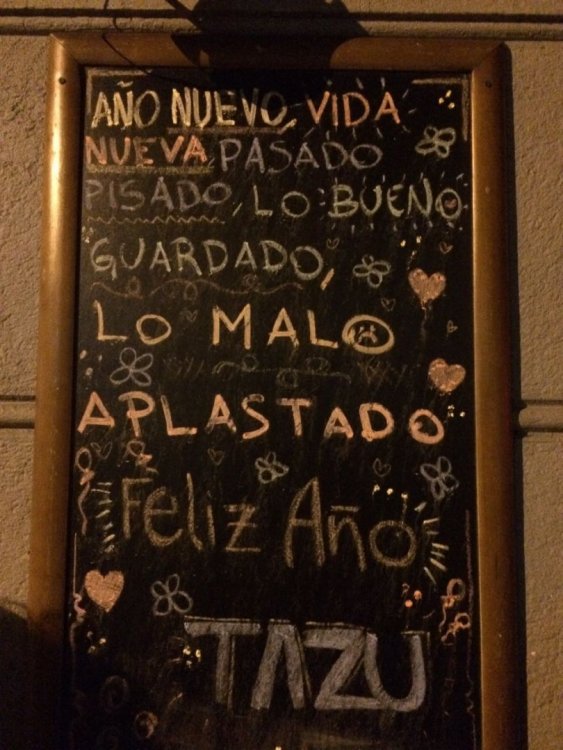 AÑO NUEVO, VIDA
NUEVA, PASADO
PISADO, LO BUENO
GUARDADO,
LO MALO
APLASTADO
Feliz Año
TAZU